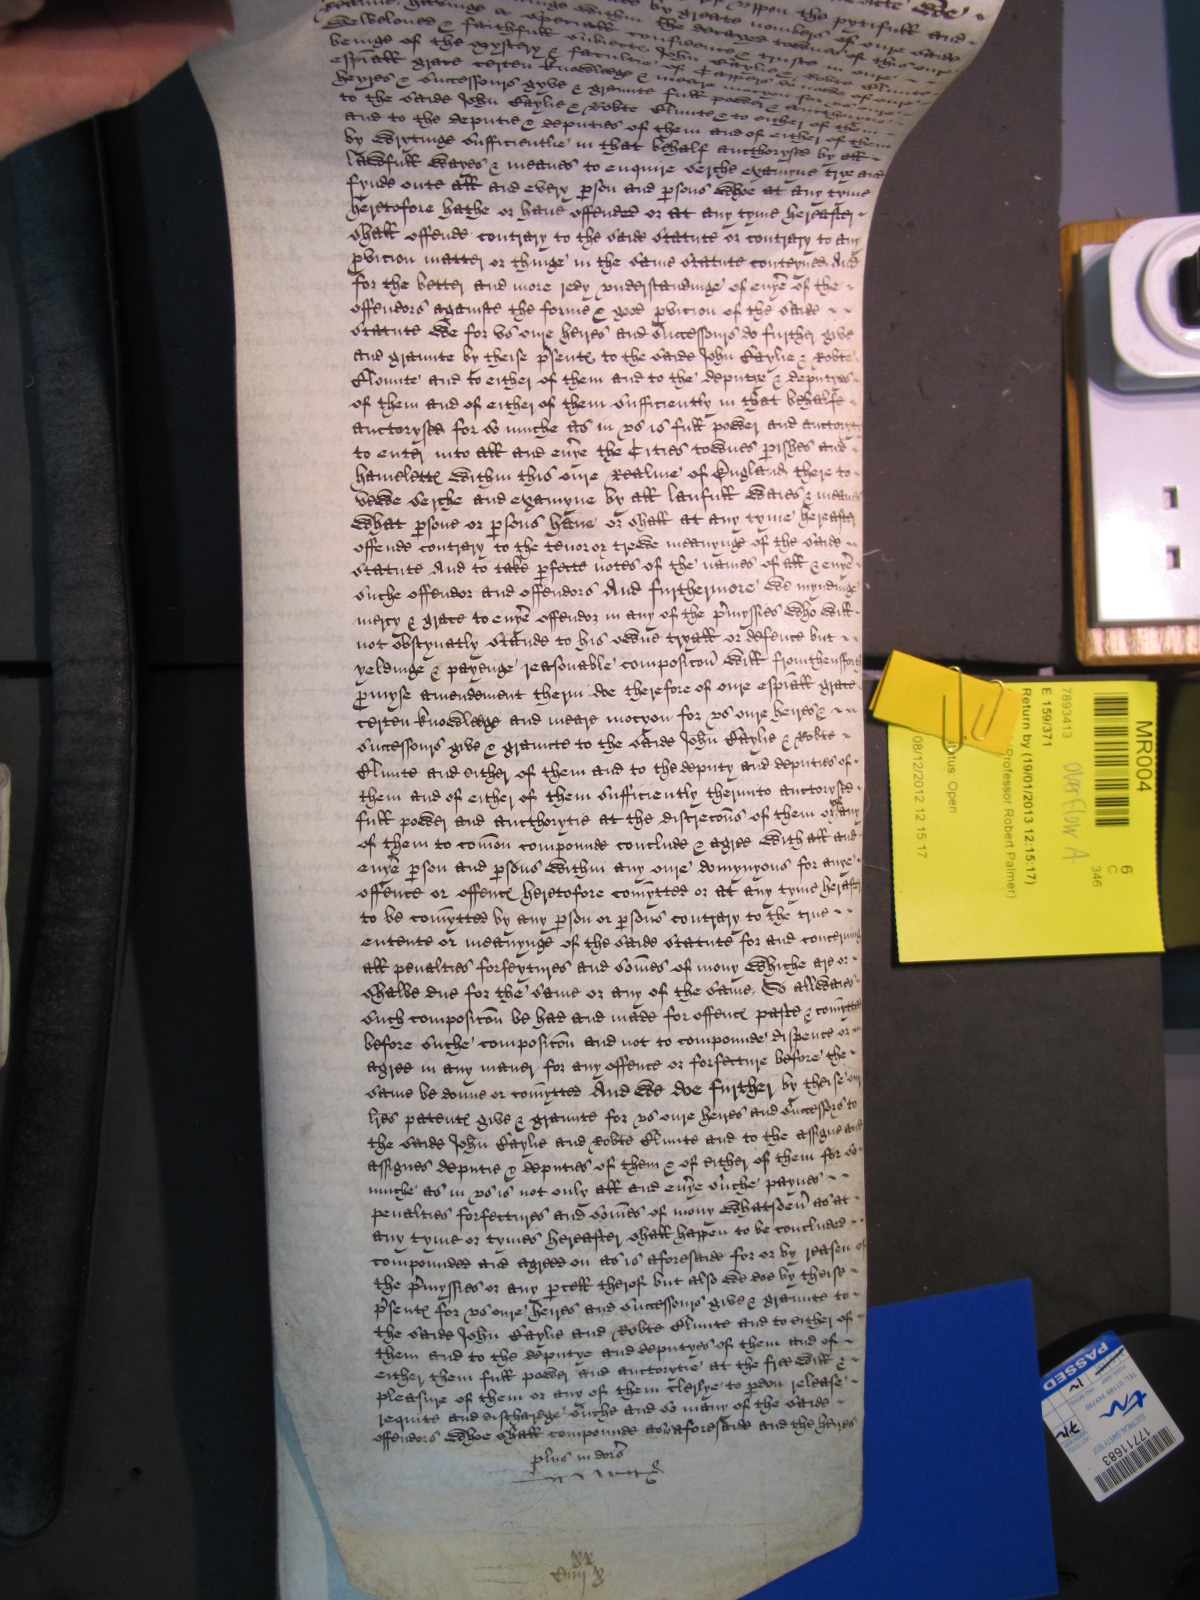 beloved & faithfull Subiecte John Caylie & Robte Clunte
beinge of the mystery & facultie of Cappers do nowe of oure
espiall grace certen knowledge & meare mocyon for us oure
heyres & Successours gyve & graunte full power & aucthorytie
to the saide John Caylie & Robte Clunte & to either of them
and to the deputie & deputies of them and of either of them
by wrytinge Sufficientlie in that behalf aucthorysed by all
lawfull wayes & meanes to enquire serche examyne trye and
fynde oute all and every pson and psons whoe at any tyme
heretofore hathe or have offended or at any tyme hereafter
shall offende contrary to the saide statute or contrary to any
pvicion matter or thinge in the same statute conteyned And
for the better and more redy understandinge of evye of the
offendors againste the forme & good pvicion of the saide
statute We for us oure heires and Successours do further give
and graunte by theise psente to the saide John Caylie & Robte
Clunte and to either of them and to the deputye & deputyes
of them and of either of them sufficiently in that behalfe
auctorysed for so muche as in us is full power and auctoryte
to enter into all and evye the Cities townes pishes and
hamelette within this oure Realme of England there to
vewe serche and examyne by all laufull waies & meanes
what psone or psons have or shall at any tyme hereafter
offende contrary to the tenor or trewe meanynge of the saide
statute And to take pfecte notes of the names of all & evye
suche offendor and offendors And furthermore we myndinge
mercy & grace to evye offendor in any of the pmyssies who will
not obstynatly stande to his owne tryall or defence but
yeldinge & payenge reasonable composicon will fromthensforth
pmyse amendement therin doe therefore of oure espiall grace
certen knowledge and meare mocyon for us oure heyres &
Successours give & graunte to the saide John Caylie & Robte
Clunte and either of them and to the deputy and deputies of
them and of either of them sufficiently therunto auctorysed
full power and aucthorytie at the discrecons of them or of any
of them to comon compounde conclude & agree with all and
evye pson and psons within any oure domynyons for anye
offence or offence heretofore comytted or at any tyme herafter
to be comytted by any pson or psons contrary to the true
entente or meanynge of the saide statute for and concerning
all penalties forfeytures and somes of mony whiche are or
shalbe due for the same or any of the same. So allwaies
such composicon be had and made for offence paste & comytted
before suche composicon and not to compounde dispence or
agree in any maner for any offence or forfecture before the
same be donne or comytted And we doe further by theise our
lres patente give & graunte for us oure heires and Successors to
the saide John Caylie and Robte Clunte and to the assigne and
assignes deputie & deputies of them & of either of them for so
muche as in us is not only all and evye suche paynes
penalties forfectures and somes of mony whatsoev as at
any tyme or tymes hereafter shall happen to be concluded
compounded and agreed on as is aforesaide for or by reason of
the pmyssies or any pcell therof but also we doe by theise
psente for us oure heires and Successours give & graunte to
the saide John Caylie and Robte Clunte and to either of
them and to the deputye and deputyes of them and of
either them full power and auctorytie at the free will &
pleasure of them or any of them clerlye to pdon release
requite and discharge suche and so many of the saide
offendors whoe shall compounde as is aforesaide and the heires
plus in dors
MR004
7893413
E 159/371
Return by (19/01/2013 12:15:17)
(Professor Robert Palmer)
overflow A
6
C
346
Status Open
08/12/2012 12:15:17
PASSED
17711683